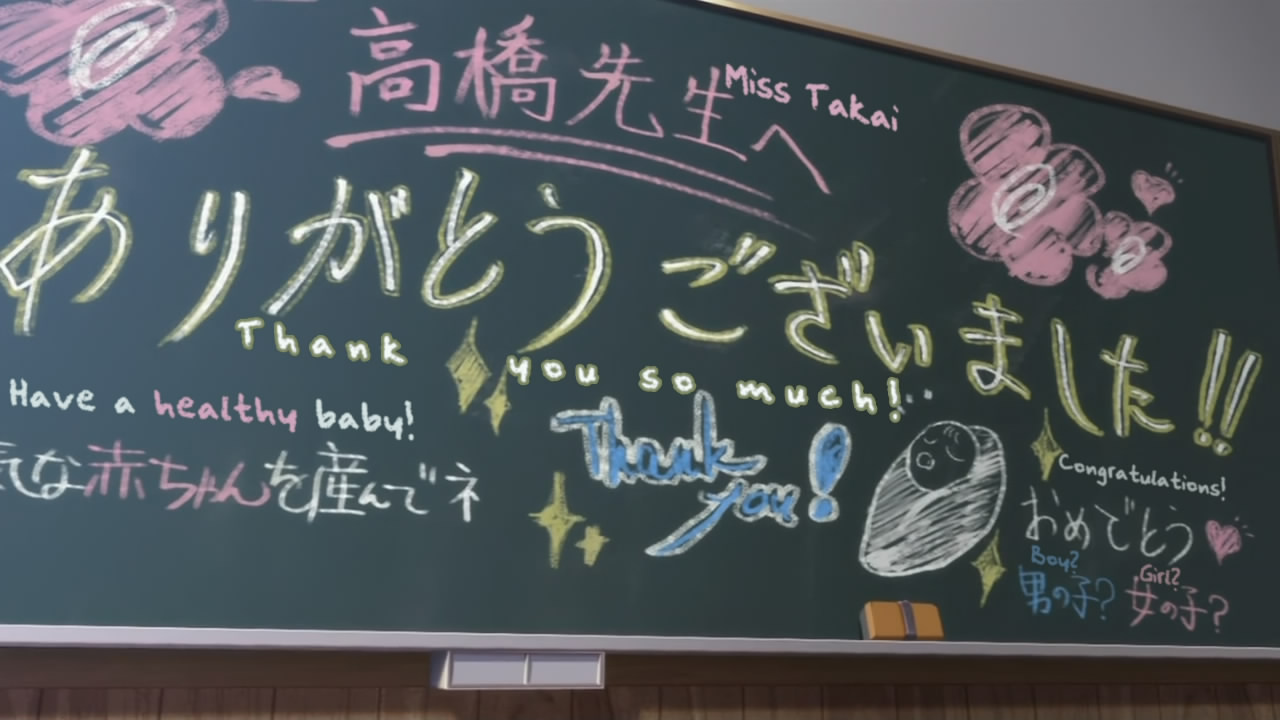 高橋先生へ
Miss Takai
ありがとうございました!!
Thank you so much!
Have a healthy baby!
な赤ちゃんを産んでネ
Thank you!
Congratulations!
おめでとう
Boy?
男の子?
Girl?
女の子?